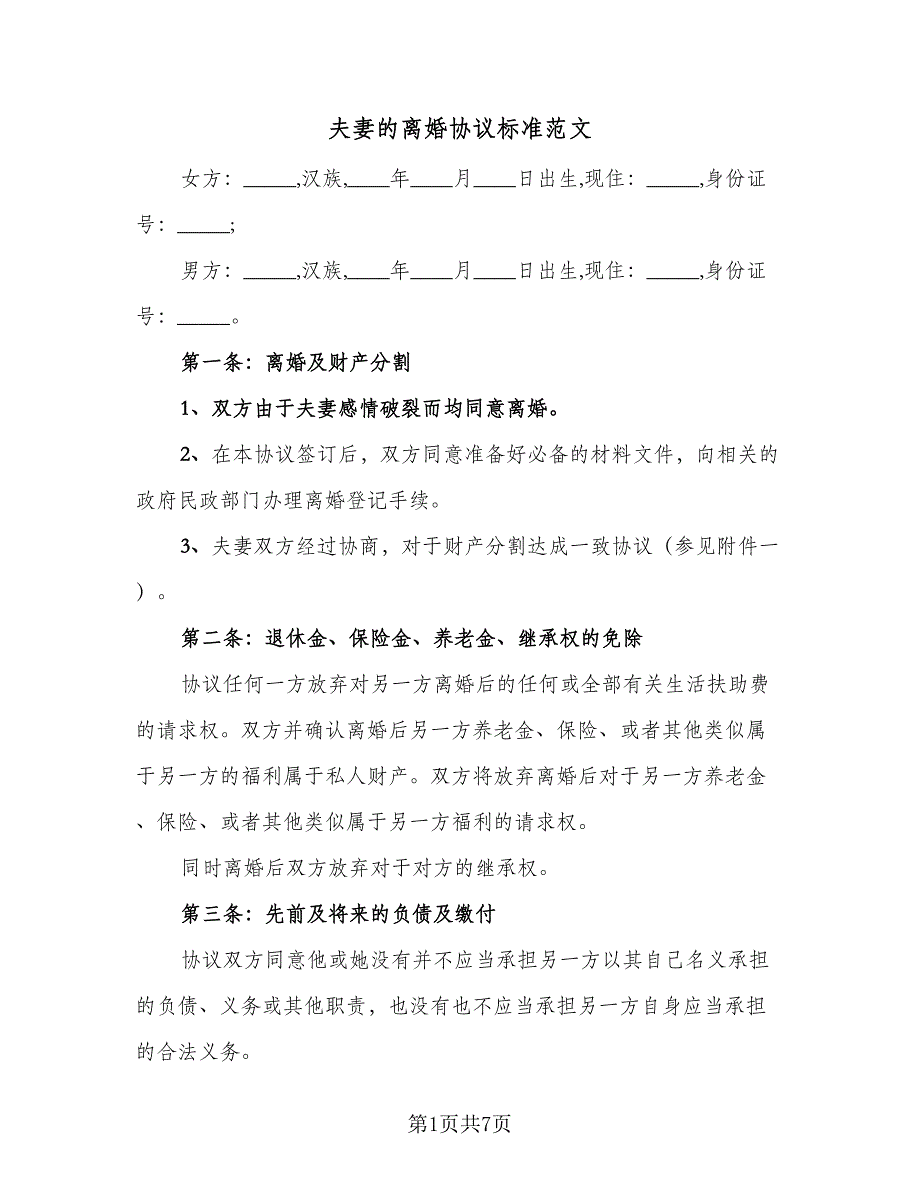 夫妻的离婚协议标准范文
女方：_____,汉族,____年____月____日出生,现住：_____,身份证
号：_____;
男方：_____,汉族,____年____月____日出生,现住：_____,身份证
号：_____。
第一条：离婚及财产分割
1、双方由于夫妻感情破裂而均同意离婚。
2、在本协议签订后，双方同意准备好必备的材料文件，向相关的
政府民政部门办理离婚登记手续。
3、夫妻双方经过协商，对于财产分割达成一致协议（参见附件一
）。
第二条：退休金、保险金、养老金、继承权的免除
协议任何一方放弃对另一方离婚后的任何或全部有关生活扶助费
的请求权。双方并确认离婚后另一方养老金、保险、或者其他类似属
于另一方的福利属于私人财产。双方将放弃离婚后对于另一方养老金
、保险、或者其他类似属于另一方福利的请求权。
同时离婚后双方放弃对于对方的继承权。
第三条：先前及将来的负债及缴付
协议双方同意他或她没有并不应当承担另一方以其自己名义承担
的负债、义务或其他职责，也没有也不应当承担另一方自身应当承担
的合法义务。
第1页共7页